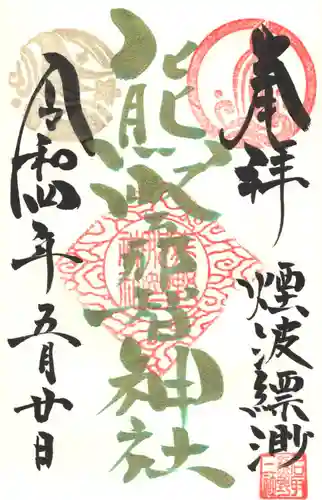 奉拝
煙波縹渺
熊野那智神社
令和四年五月廿日